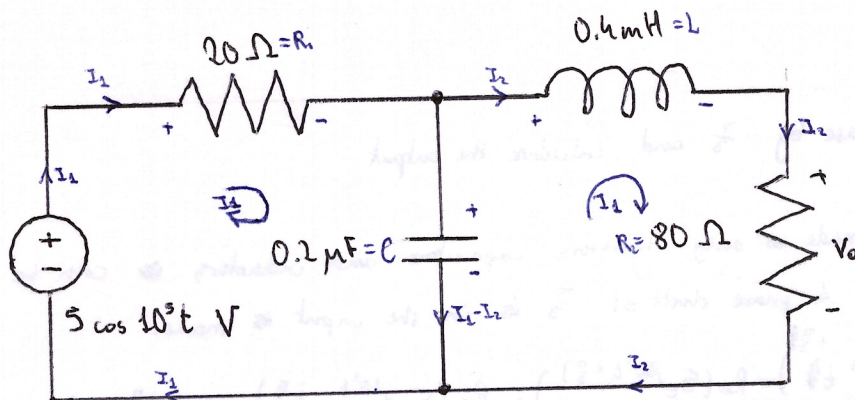 20 Ω = R₁
0.4 mH = L
I₁
I₂
+
-
+
-
I₂
I₁
I₁
+
I₁
+
-
0.2 μF = C
+
-
R₂ = 80 Ω
V₀
I₁-I₂
-
5 cos 10⁵t V
I₁
I₂